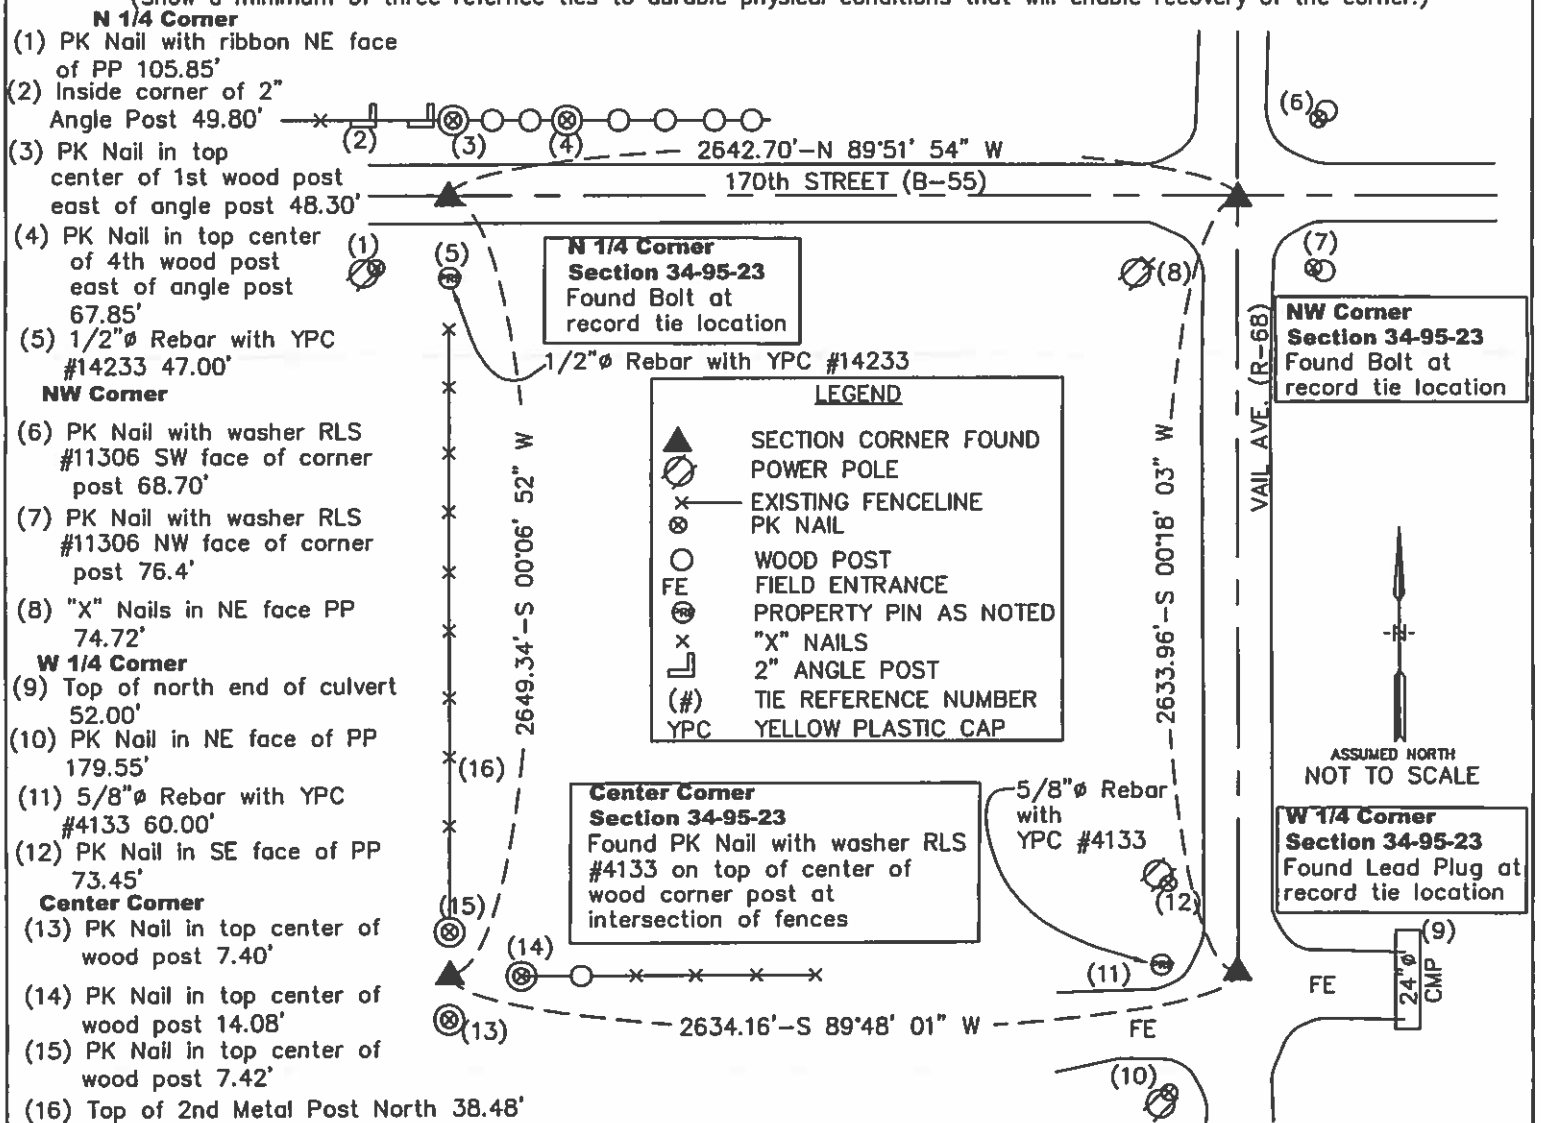 (Show a minimum of three reference ties to durable physical conditions that will enable recovery of the corner.)
N 1/4 Corner
(1) PK Nail with ribbon NE face
of PP 105.85'
(2) Inside corner of 2"
Angle Post 49.80'
(3) PK Nail in top
center of 1st wood post
east of angle post 48.30'
(4) PK Nail in top center
of 4th wood post
east of angle post
67.85'
(5) 1/2"ø Rebar with YPC
#14233 47.00'
NW Corner
(6) PK Nail with washer RLS
#11306 SW face of corner
post 68.70'
(7) PK Nail with washer RLS
#11306 NW face of corner
post 76.4'
(8) "X" Nails in NE face PP
74.72'
W 1/4 Corner
(9) Top of north end of culvert
52.00'
(10) PK Nail in NE face of PP
179.55'
(11) 5/8"ø Rebar with YPC
#4133 60.00'
(12) PK Nail in SE face of PP
73.45'
Center Corner
(13) PK Nail in top center of
wood post 7.40'
(14) PK Nail in top center of
wood post 14.08'
(15) PK Nail in top center of
wood post 7.42'
(16) Top of 2nd Metal Post North 38.48'
(2)
(3)
(4)
(6)
2642.70'-N 89°51' 54" W
170th STREET (B-55)
(1)
(5)
PRP
N 1/4 Corner
Section 34-95-23
Found Bolt at
record tie location
(8)
(7)
1/2"ø Rebar with YPC #14233
NW Corner
Section 34-95-23
Found Bolt at
record tie location
VAIL AVE. (R-68)
2649.34'-S 00°06' 52" W
2633.96'-S 00°18' 03" W
LEGEND
SECTION CORNER FOUND
POWER POLE
EXISTING FENCELINE
PK NAIL
WOOD POST
FE FIELD ENTRANCE
PRP PROPERTY PIN AS NOTED
"X" NAILS
2" ANGLE POST
(#) TIE REFERENCE NUMBER
YPC YELLOW PLASTIC CAP
N
ASSUMED NORTH
NOT TO SCALE
(16)
Center Corner
Section 34-95-23
Found PK Nail with washer RLS
#4133 on top of center of
wood corner post at
intersection of fences
5/8"ø Rebar
with
YPC #4133
W 1/4 Corner
Section 34-95-23
Found Lead Plug at
record tie location
(12)
(15)
(14)
(13)
(11)
PRP
(9)
24"ø
CMP
FE
2634.16'-S 89°48' 01" W
FE
(10)